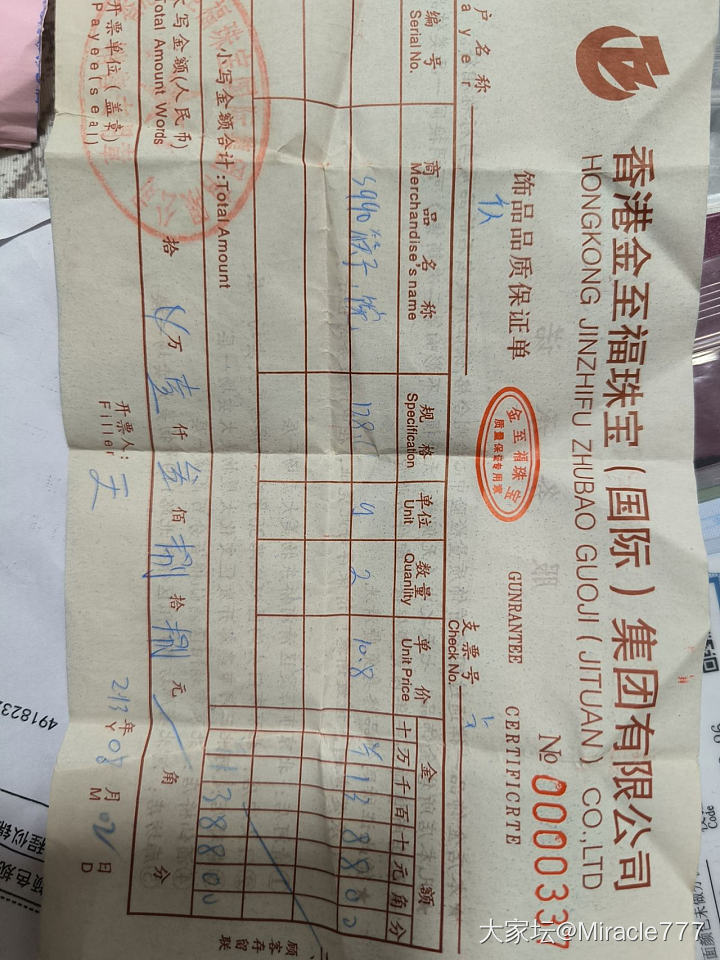 香港金至福珠宝（国际）集团有限公司
HONGKONG JINZHIFU ZHUBAO GUOJI（JITUAN）CO.,LTD
饰品品质保证单
GUNRANTEE CERTIFICRTE
№ 0000337
金至福珠宝
质量保证专用章
户名称
ayer
支票号
Check No.
编号 商品名称 规格 单位 数量 单价 金额
Serial No. Merchandise's name Specification Unit Quanlity Unit Price 十万千百十元角分
S990筷子 128 2 10.8 ¥138800
小写金额合计:Total Amount 138800
大写金额(人民币) 拾 万 壹仟 叁佰 捌拾 捌元 角 分
Total Amount Words
开票单位(盖章)
Payee(seal)
开票人:
Filler
213年08月02日
Y M D
顾客存留联
4918232
程似锦
颜色规
Code
大家坛@Miracle777